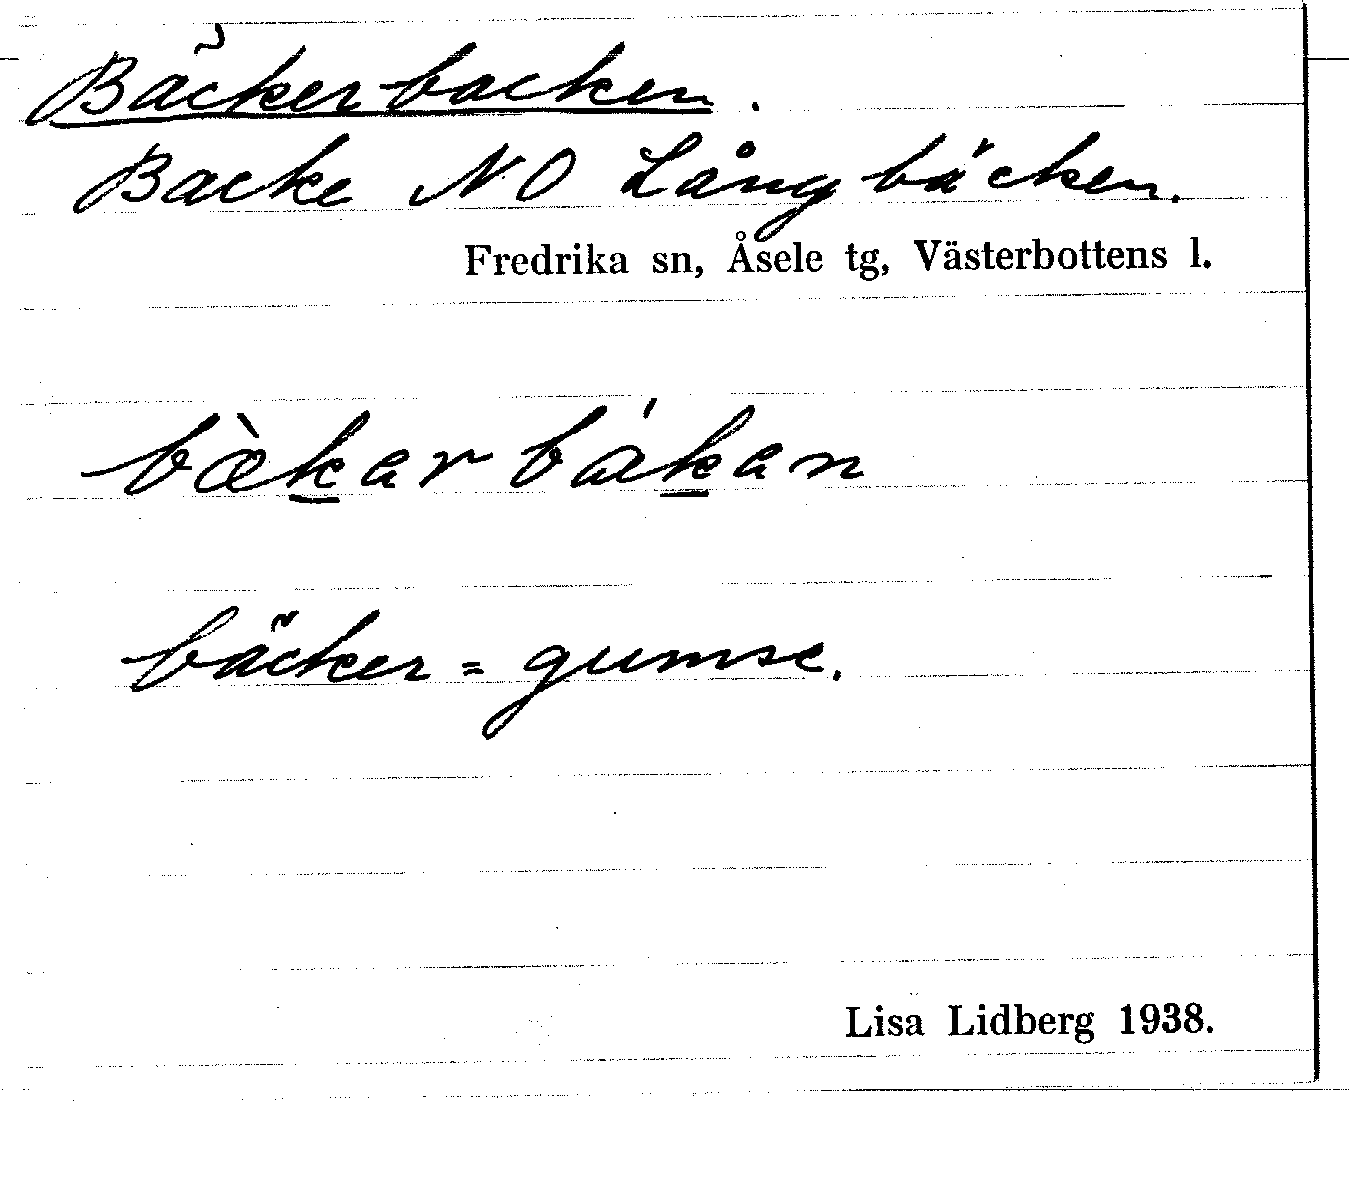 Bäckerbacken.
Backe NO Långbäcken.
Fredrika sn, Åsele tg, Västerbottens l.
bæ̀k̲ar bák̲an
bäcker = gumse.
Lisa Lidberg 1938.